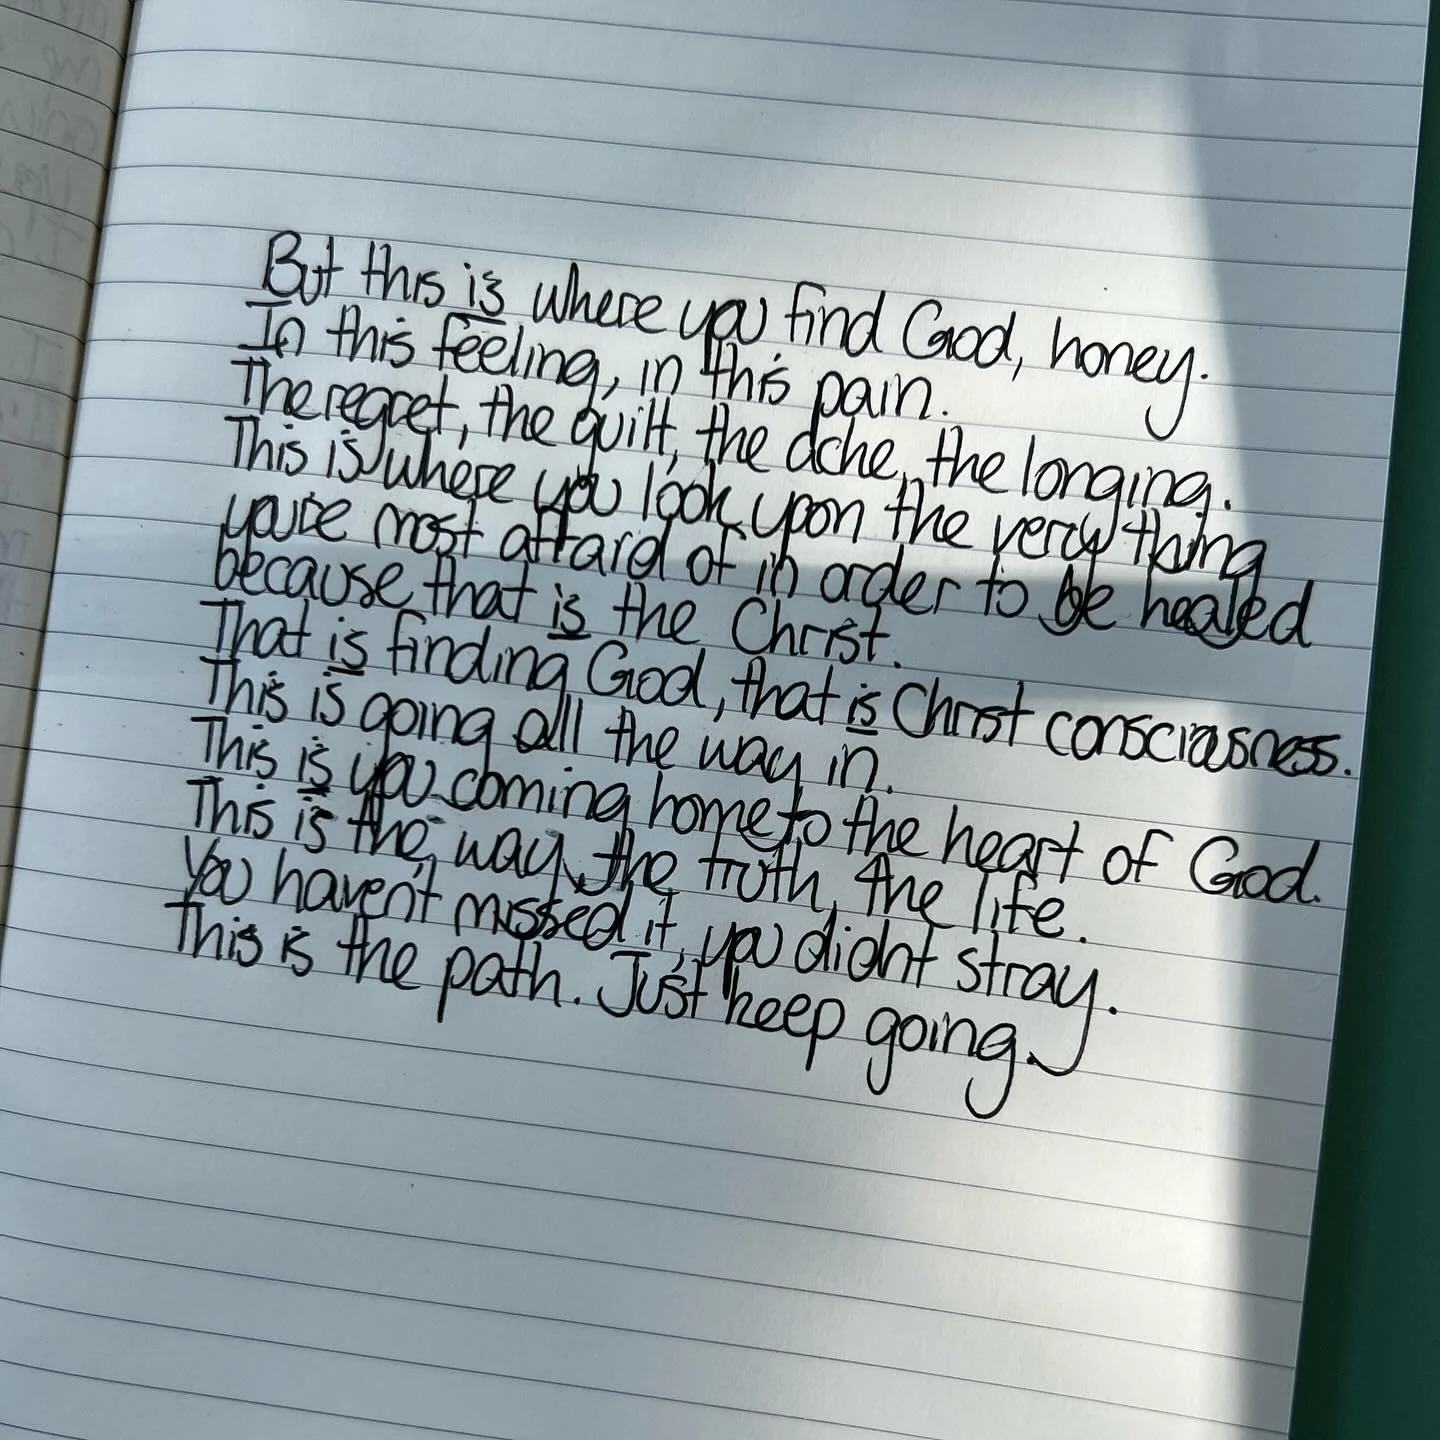 But this is where you find God, honey.
In this feeling, in this pain.
The regret, the guilt, the ache, the longing.
This is where you look upon the very thing
you're most afraid of in order to be healed
because that is the Christ.
That is finding God, that is Christ consciousness.
This is going all the way in.
This is you coming home to the heart of God.
This is the way, the truth, the life.
You haven't missed it, you didn't stray.
This is the path. Just keep going.